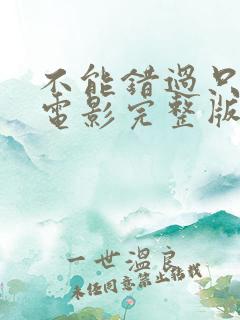 不能错過只
電影完整版
一世溫良
未经同意禁止转载